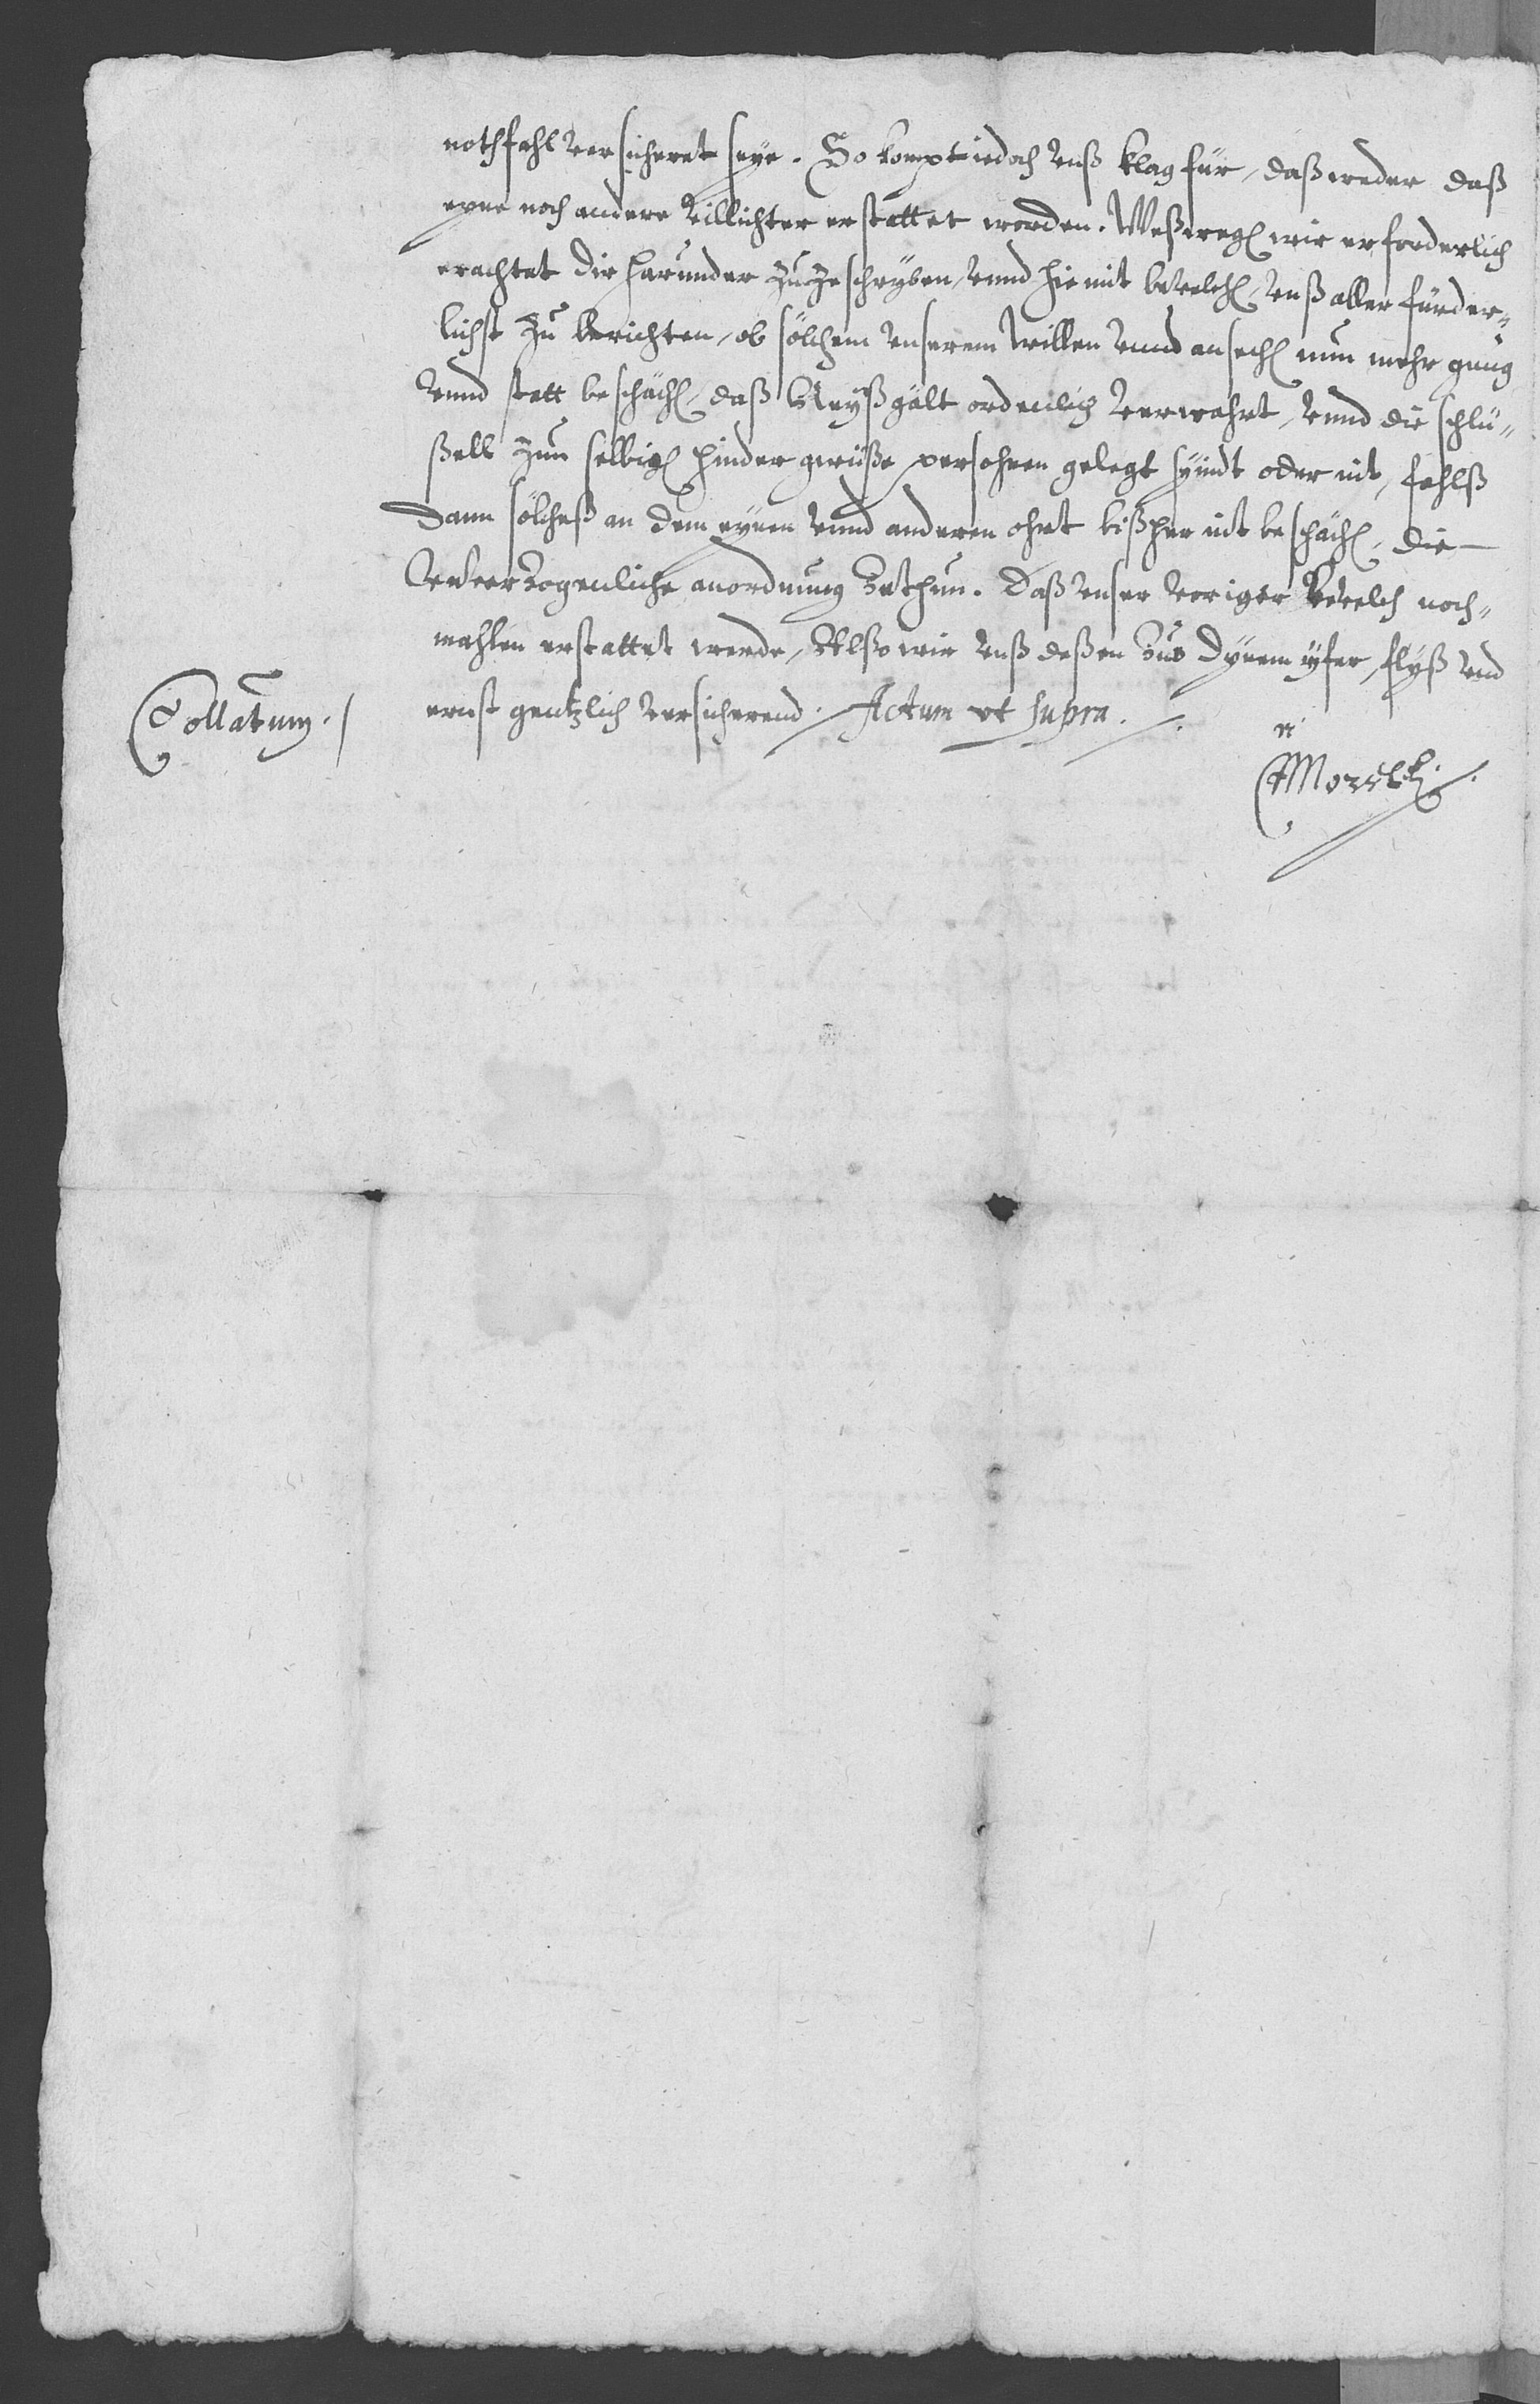 nothfahl versicheret seye. So kompt iedoch unß klag für, daß weder daß
eyne noch andere villichter erstattet worden. Weßwegen wir erforderlich
erachtet dir harunder zuzeschryben, unnd hiemit bevelchen, unß aller fürder-
lichst zu berichten, ob sölchem unserem willen unnd ansechen nun mehr gnug
unnd statt beschächen, daß Reyßgält ordenlich verwahrt, unnd die schlü-
ßell zun selbigen hinder gwüße persohnen gelegt syindt oder nit, fahlß
dann sölcheß an dem eynen unnd anderen ohrt bißher nit beschächen, die
unverzogenliche anordnung zethun. Daß unser voriger bevelch noch-
mahlen erstattet werde, Alßo wir unß deßen zuo dynem yfer, flyß und
ernst gentzlich versicherend. Actum ut supra.
Collatum.